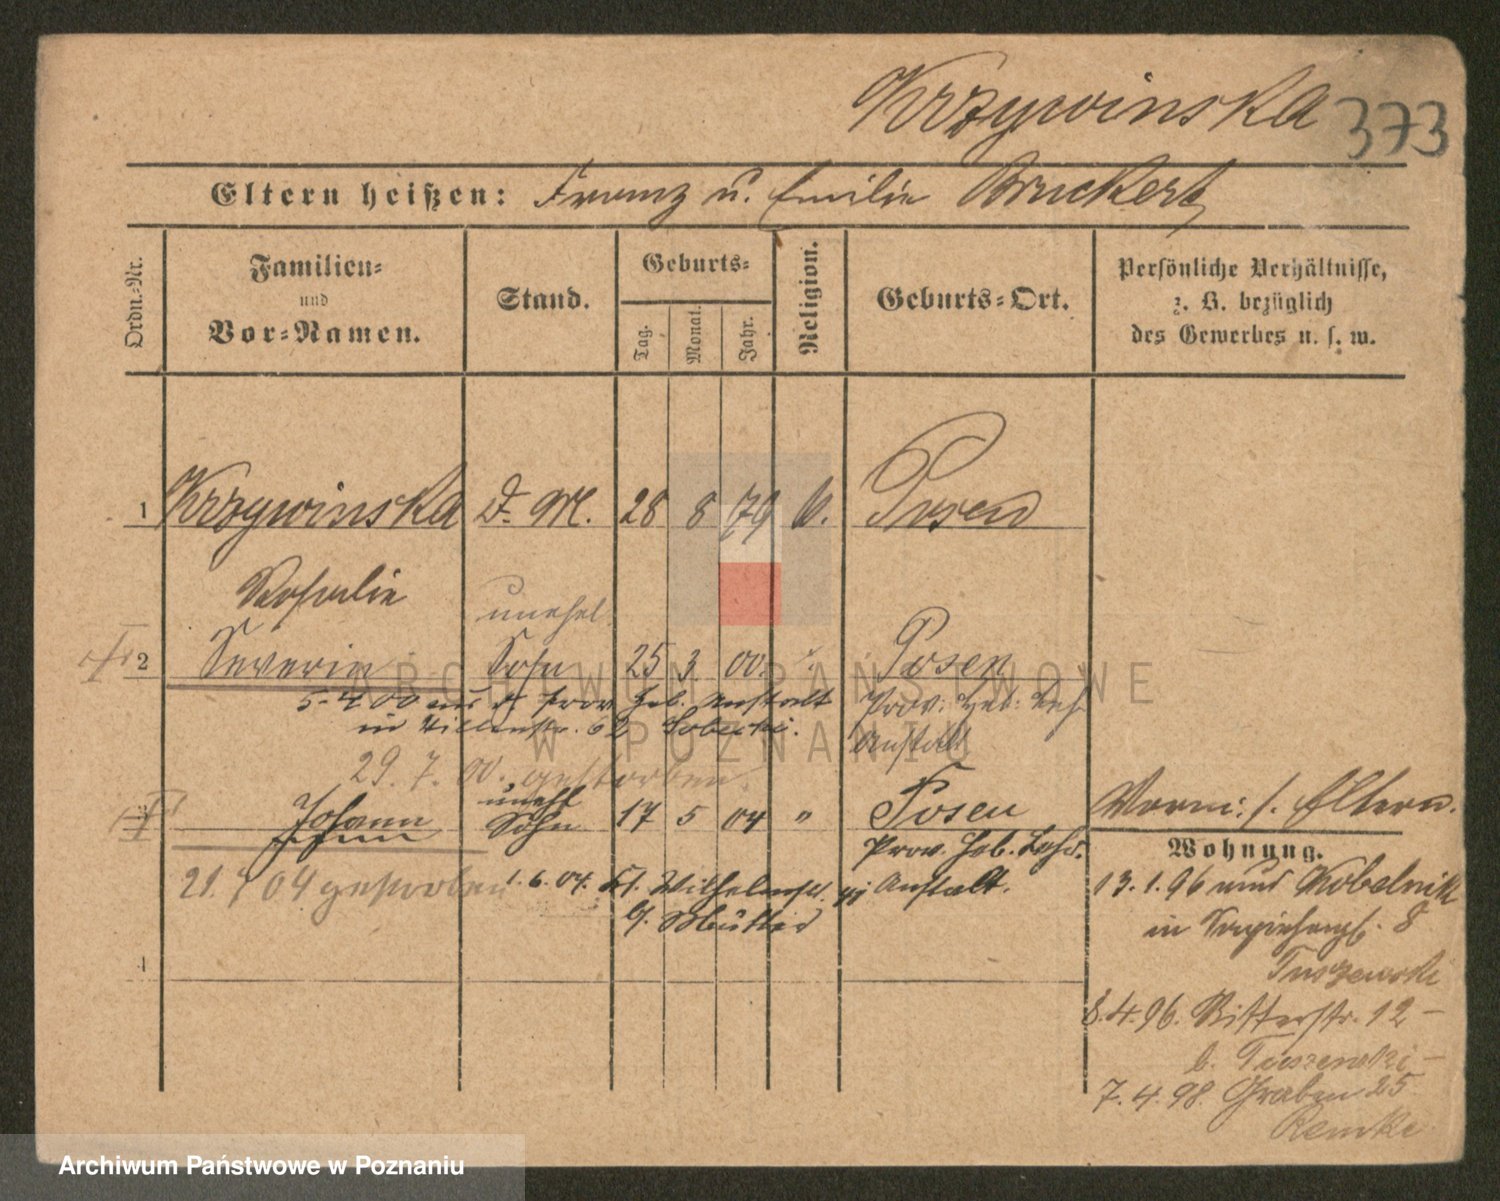 Krzywinska 373
Eltern heißen: Franz u. Emilie Bruckert
Ordn.-Nr.
Familien-
und
Vor-Namen.
Stand.
Geburts-
Tag.
Monat.
Jahr.
Religion.
Geburts-Ort.
Persönliche Verhältnisse,
z. B. bezüglich
des Gewerbes u. s. w.
1 Krzywinska D. M. 28 8 79 k. Posen
Rosalie
unehel.
2 Severin Sohn 25 3 00. Posen
5.4.00 aus d. Prov. Heb. Anstalt Prov. Heb. Leh.
in 62 Anstalt
29.7.00. gestorben.
unehl
Johann Sohn 17 5 04 " Posen
Prov. Heb. Leh.
21. 7 04 gestorben 1.6.04. Anstalt.
b. Mutter
4
Vorm: s. Eltern.
Wohnung.
13.1.96 Kobelnik
in 8
Tuszewski
8.4.96. Ritterstr. 12 -
b. Tuszewski -
7.4.98. Graben 25
Remke
ARCHIWUM PAŃSTWOWE
W POZNANIU
Archiwum Państwowe w Poznaniu